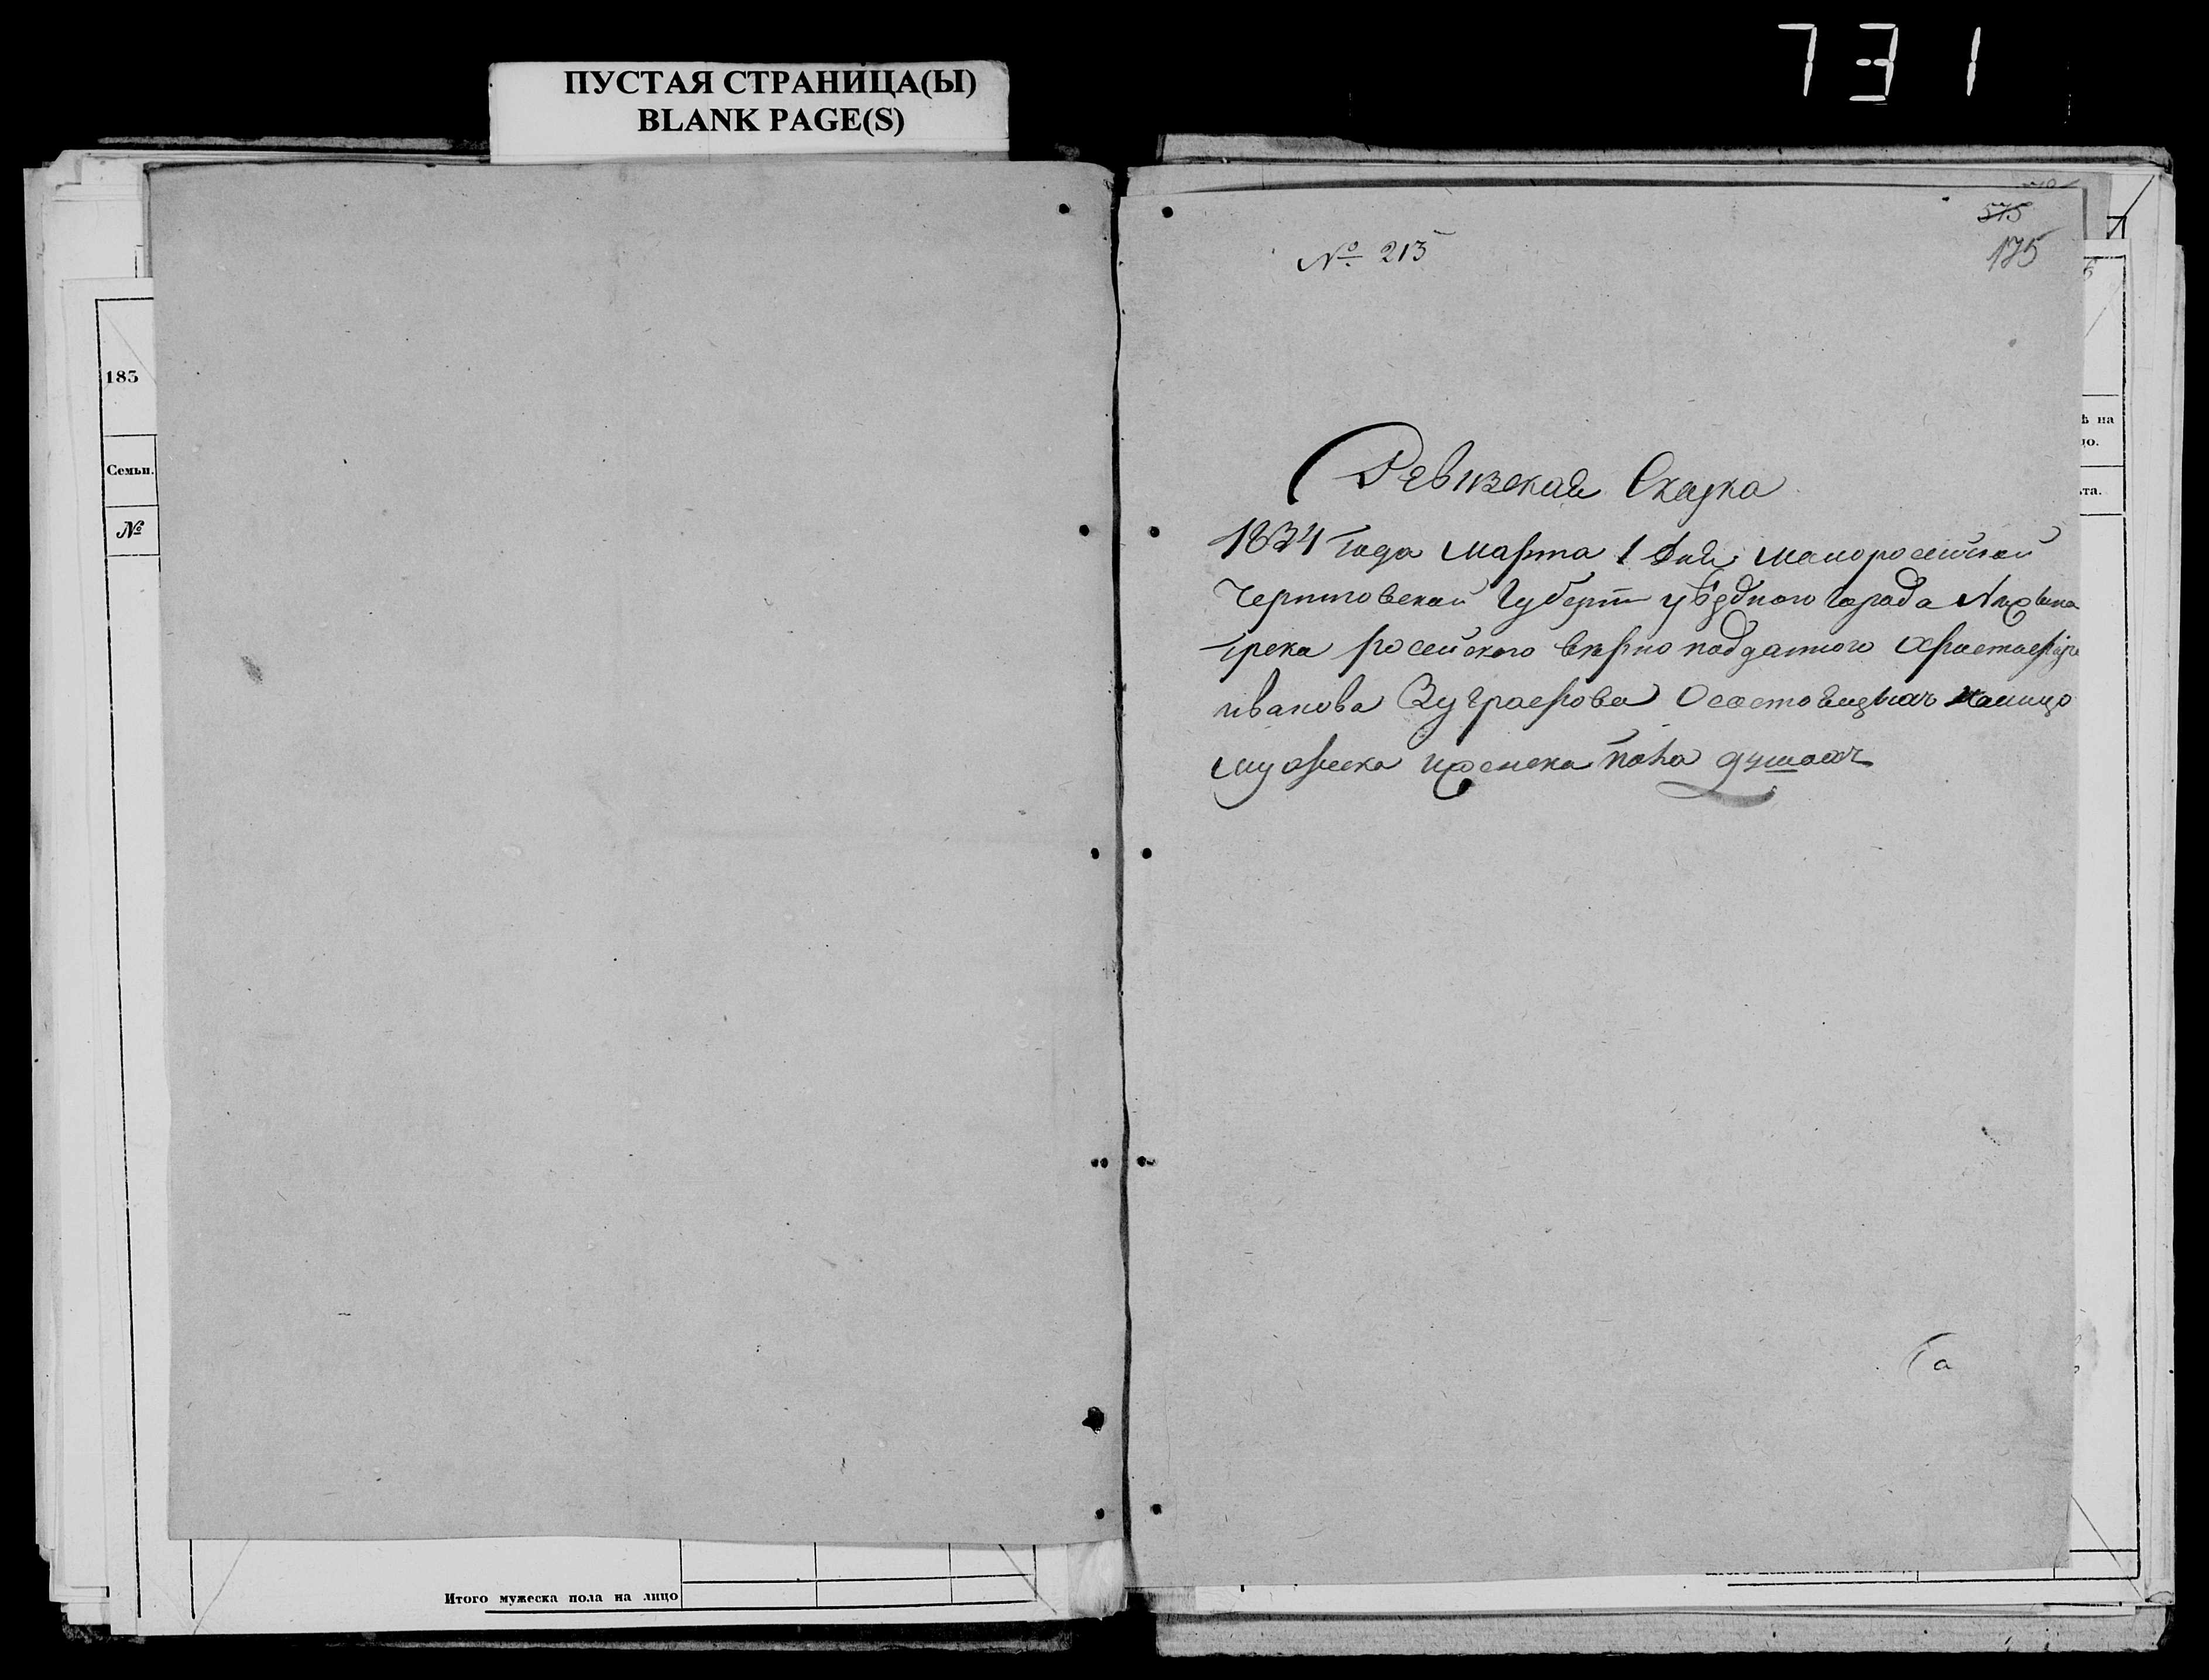 731
ПУСТАЯ СТРАНИЦА(Ы)
BLANK PAGE(S)
183
Семьи.
№
Итого мужеска пола на лицо
575
175
№ 213
ѣ на
та.
Ревизская Сказка
1834 года марта 1 дня малоросийской
Черниговской Губерн уѣздного города Нѣжина
Грека росейского верно подданного Христофора
иванова Зуграфова Осостоящихъ налицо
мужеска иженска пола душахъ